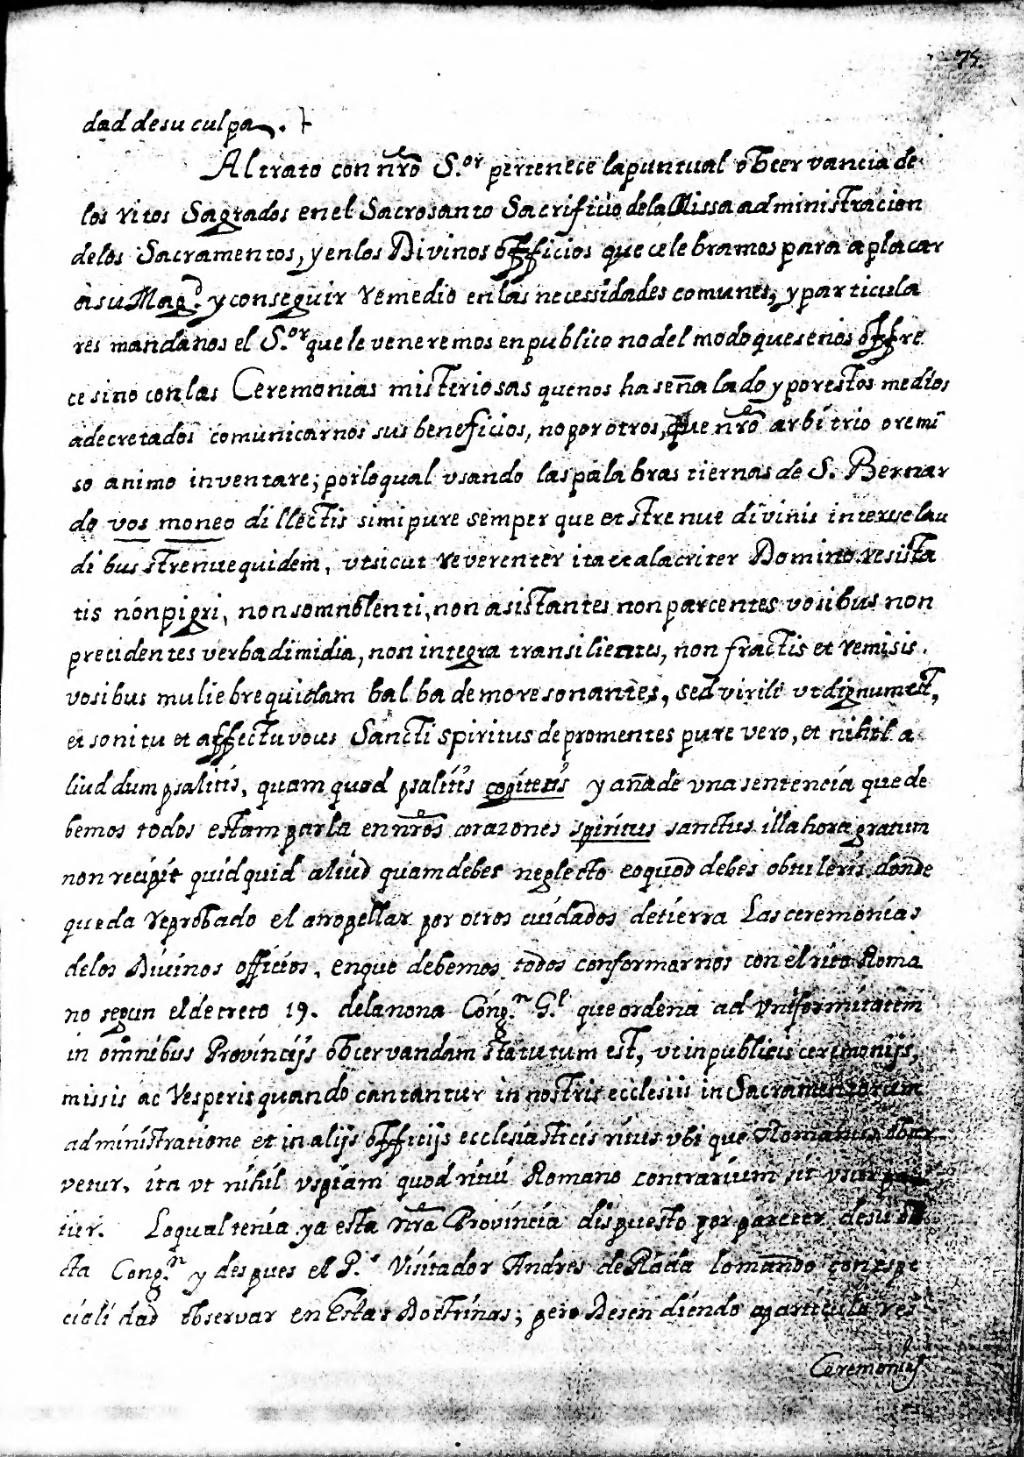 75.
dad de su culpa.
Al trato con nrõ S.or pertenece la puntual obcervancia de
los ritos Sagrados en el Sacrosanto Sacrificio de la Missa administracion
de los Sacramentos, y en los Divinos officios que celebramos para aplacar
a su Mag.d y conseguir remedio en las necessidades comunes, y particula
res mandanos el S.or que le veneremos en publico no del modo que se nos offre
ce sino con las Ceremonias misteriosas que nos ha señalado y por estos medios
a decretados comunicarnos sus beneficios, no por otros, que nrõ arbitrio o remi
so animo inventare; por lo qual usando las palabras tiernas de S. Bernar
do vos moneo dillectis simi pure semper que et strenue divinis interue lau
dibus strenue quidem, ut sicut reverenter ita et alacriter Domino resista
tis non pigri, non somnolenti, non asistantes non parcentes vosibus non
precidentes verba dimidia, non integra transilientes, non fractis et remisis
vosibus muliebre quidam balba de more sonantes, sed virili ut dignum est,
et sonitu et affectu vous Sancti spiritus depromentes pure vero, et nihil a
liud dum psalitis, quam quod psalitis cogitetis y añade una sentencia que de
bemos todos estamparla en nrõs corazones spiritus sanctus illa hora gratum
non recipit quidquid aliud quam debes neglecto eo quod debes obtuleris, donde
queda reprobado el atropellar por otros cuidados de tierra Las ceremonias
de los Divinos officios, en que debemos todos conformarnos con el rito Roma
no segun el decreto 19. de la nona Cong.n G.l que ordena ad Uniformitatem
in omnibus Provincijs obcervandam statutum est, ut in publicis ceremonijs,
missis ac Vesperis quando cantantur in nostris ecclesiis in Sacramentorum
administratione et in alijs officijs ecclesiasticis ritus ubi que Romanus obcer
vetur, ita ut nihil uspiam quod ritui Romano contrarium sit usurpa
tur. Lo qual tenia ya esta nrã Provincia dispuesto por parecer de su
cta Cong.n y despues el P.e Visitador Andres de Rada lo mando con espe
cialidad observar en Estas Doctrinas; pero Desendiendo a particulares
Ceremonias